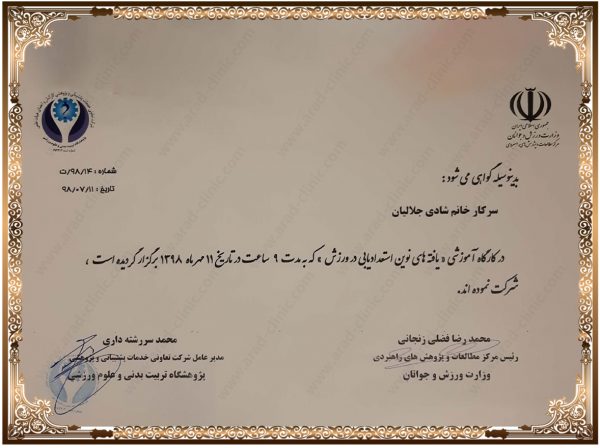 جمهوری اسلامی ایران
وزارت ورزش و جوانان
مرکز مطالعات و پژوهش های راهبردی
شماره : ۹۸/۱۴/ت
تاریخ : ۹۸/۰۷/۱۱
بدینوسیله گواهی می شود :
سرکار خانم شادی جلالیان
در کارگاه آموزشی « یافته های نوین استعدادیابی در ورزش » که به مدت ۹ ساعت در تاریخ ۱۱ مهرماه ۱۳۹۸ برگزار گردیده است ،
شرکت نموده اند.
محمد رضا فضلی زنجانی
رئیس مرکز مطالعات و پژوهش های راهبردی
وزارت ورزش و جوانان
محمد سررشته داری
مدیر عامل شرکت تعاونی خدمات پشتیبانی و پژوهشی
پژوهشگاه تربیت بدنی و علوم ورزشی
www.arad-clinic.com